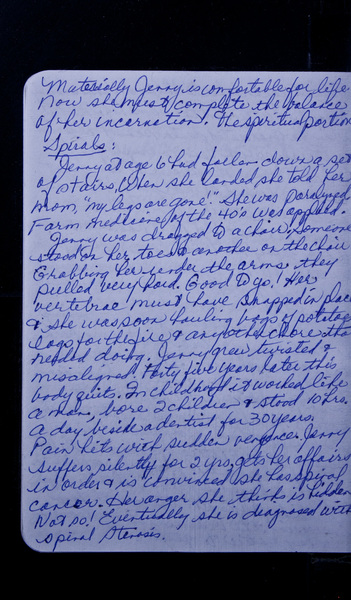 Materially Jenny is comfortable for life.
Now she must complete the balance
of her incarnation. The spiritual portion
Spirals:
Jenny at age 6 had fallen down a set
of stairs, When she landed she told her
mom, "my legs are gone". She was paralyzed.
Farm medicine of the 40's was applied.
Jenny was dragged to a chair, someone
stood on her toes & another on the chair
Grabbing her under the arms. they
pulled very hard. Good to go! Her
vertebrae must have snapped in place
& she was soon hauling bags of potatoes
logs for the fire & any other chore that
needed doing. Jenny grew twisted &
misaligned. Thirty five years later this
body quits. In childhood it worked like
a man, bore 2 children & stood 10 hrs.
a day beside a dentist for 30 years.
Pain hits with sudden vengence. Jenny
suffers silently for 2 yrs, gets her affairs
in order & is convinced she has spinal
cancer. Her anger she thinks is hidden
Not so! Eventually she is diagnosed with
spinal stenosis.